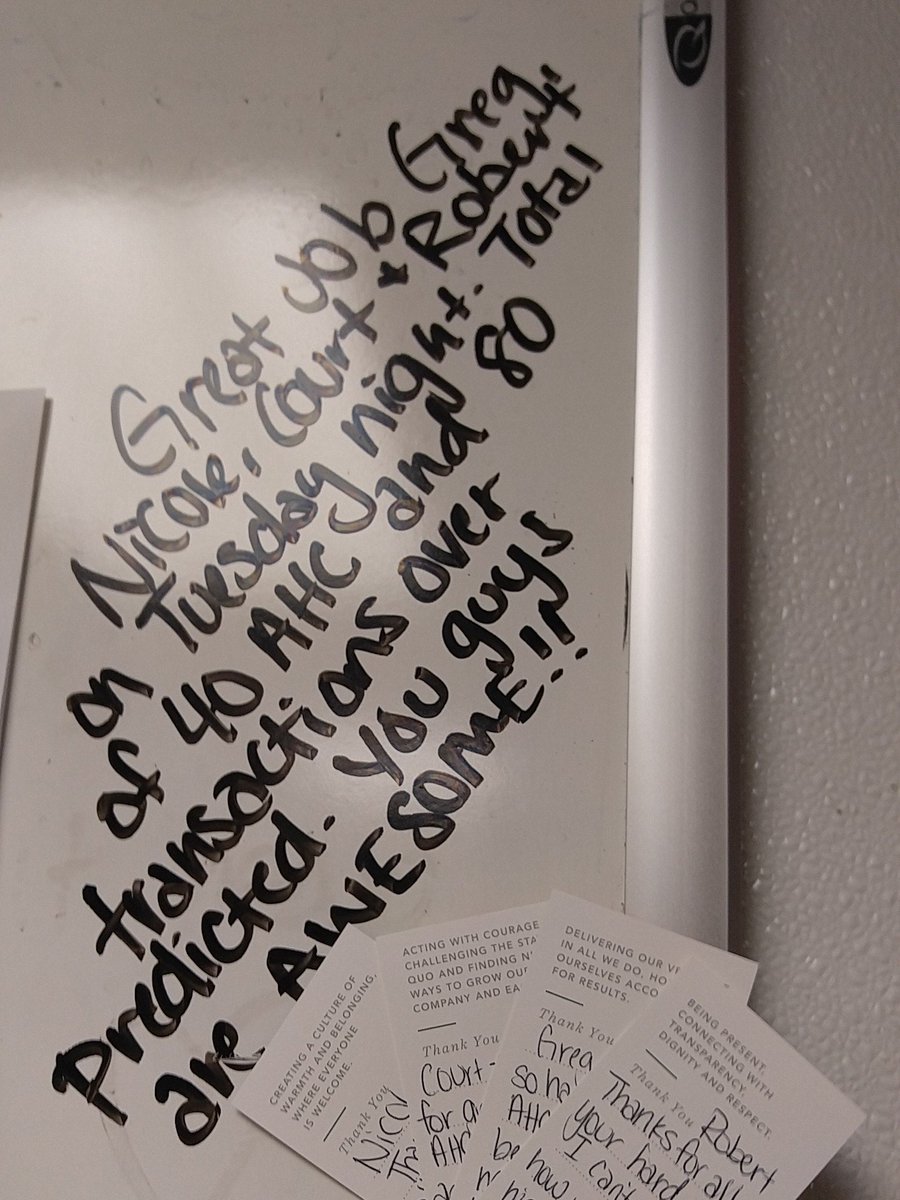 Great Job Greg,
Nicole, Court & Robert
on Tuesday night.
of 40 AHC and 80 Total
transactions over
Predicted. You guys
are AWESOME!!
CREATING A CULTURE OF
WARMTH AND BELONGING,
WHERE EVERYONE
IS WELCOME.
Thank You
ACTING WITH COURAGE
CHALLENGING THE
QUO AND FINDING
WAYS TO GROW OUR
COMPANY AND
Thank You
Court-
for a
AHC
DELIVERING OUR
IN ALL WE DO,
OURSELVES
FOR RESULTS.
Thank You
Greg
so
AHC
be how
BEING PRESENT,
CONNECTING WITH
TRANSPARENCY,
DIGNITY AND RESPECT.
Thank You
Robert
Thanks for all
your hard
I can't